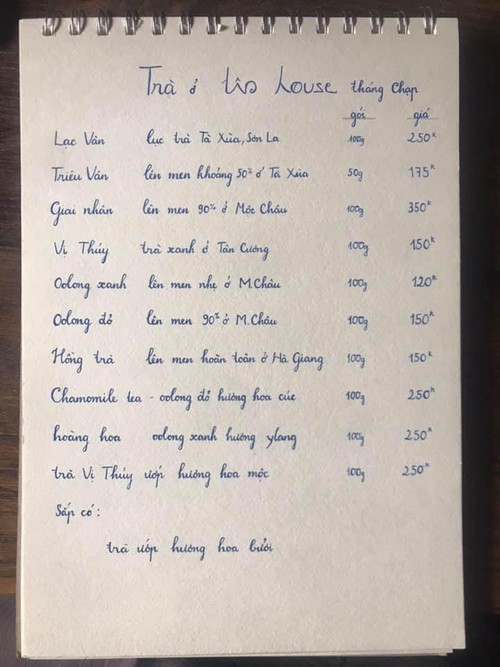 Trà ở tiên house tháng Chạp
gói giá
Lạc Vân lục trà Tà Xùa, Sơn La 100g 250k
Triêu Vân lên men khoảng 50% ở Tà Xùa 50g 175k
Giai nhân lên men 90% ở Mộc Châu 100g 350k
Vị Thúy trà xanh ở Tân Cương 100g 150k
Oolong xanh lên men nhẹ ở M.Châu 100g 120k
Oolong đỏ lên men 90% ở M.Châu 100g 150k
Hồng trà lên men hoàn toàn ở Hà Giang 100g 150k
Chamomile tea - oolong đỏ hương hoa cúc 100g 250k
hoàng hoa oolong xanh hương ylang 100g 250k
trà Vị Thúy ướp hương hoa mộc 100g 250k
Sắp có:
trà ướp hương hoa bưởi